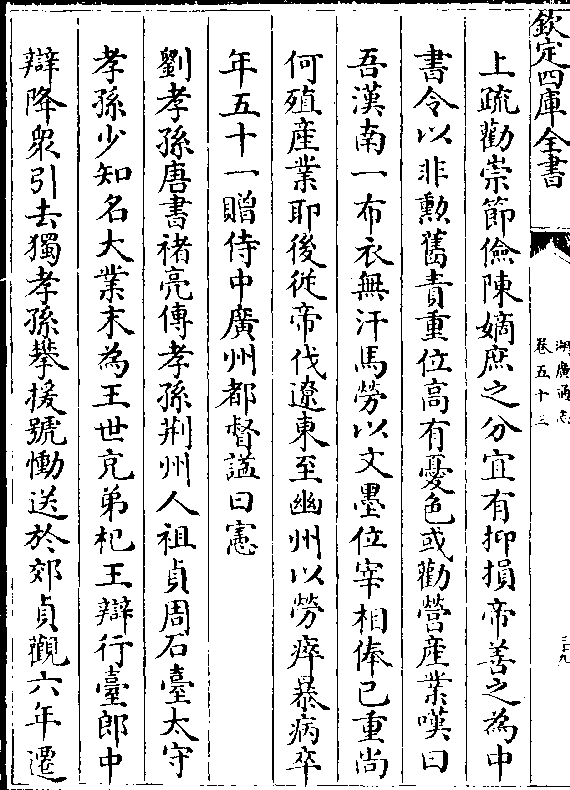 欽定四庫全書
湖廣通志
卷五十三
三九
上疏勸崇節儉陳嫡庶之分宜有抑損帝善之為中
書令以非勲舊責重位高有憂色或勸營産業嘆曰
吾漢南一布衣無汗馬勞以文墨位宰相俸已重尚
何殖産業耶後從帝伐遼東至幽州以勞瘁暴病卒
年五十一贈侍中廣州都督諡曰憲
劉孝孫唐書禇亮傳孝孫荆州人祖貞周石臺太守
孝孫少知名大業末為王世充弟杞王辯行臺郎中
辯降衆引去獨孝孫攀援號慟送於郊貞觀六年遷